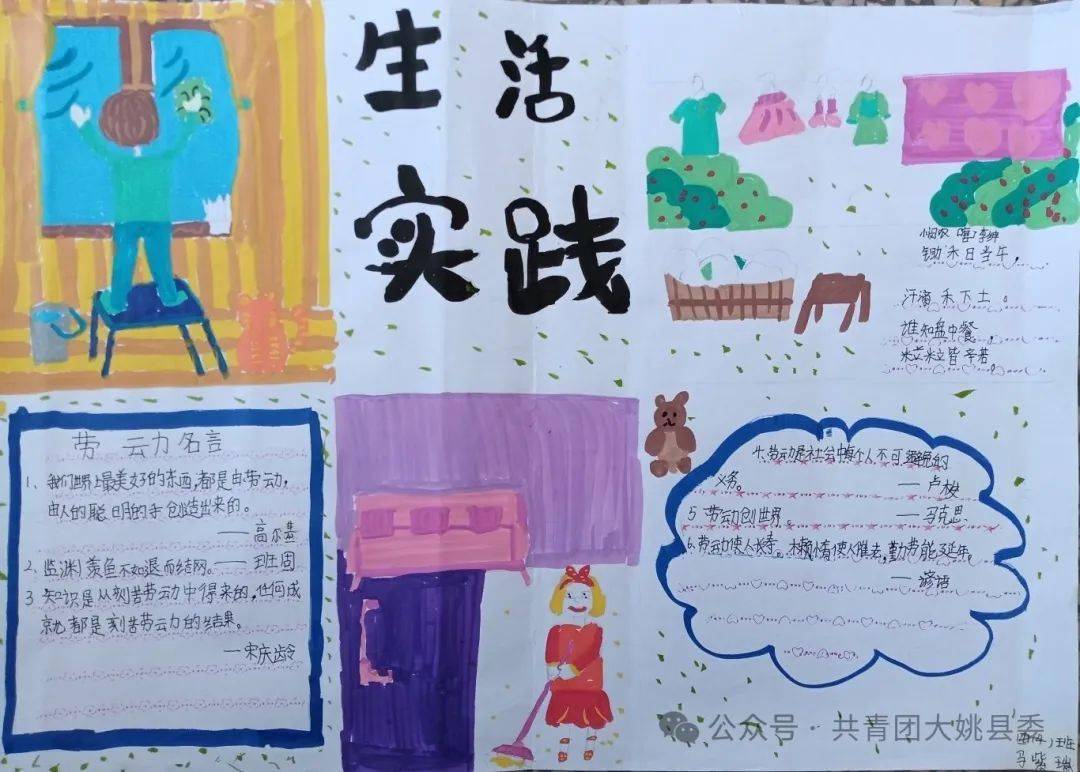 生活
实践
锄禾日当午，
汗滴禾下土。
谁知盘中餐，
粒粒皆辛苦。
劳动名言
1、我们世界上最美好的东西,都是由劳动,
由人的聪明的手创造出来的。
——高尔基
2、临渊羡鱼不如退而结网。——班固
3 知识是从刻苦劳动中得来的,任何成
就都是刻苦劳动的结果。
—宋庆龄
4.劳动是社会中每个人不可避免的
义务。 —卢梭
5 劳动创世界。 —马克思
6.劳动使人长寿。懒惰使人催老,勤劳能延年。
—谚语
公众号·共青团大姚县委
班
马紫瑞